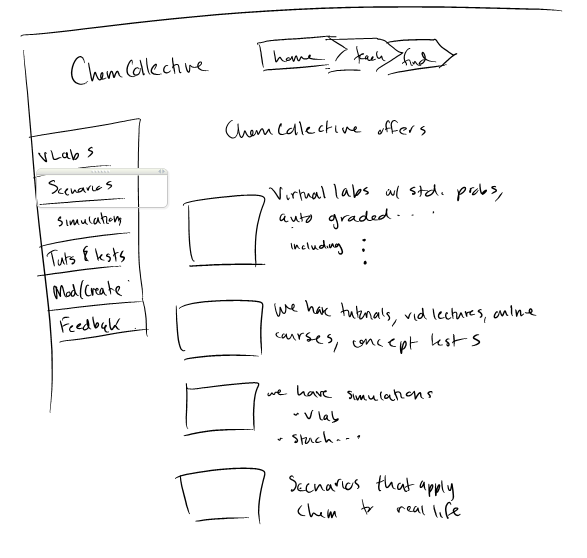 ChemCollective
home
teach
find
VLabs
Scenarios
simulations
Tuts & tests
Mod/Create
Feedback
ChemCollective offers
Virtual labs w/ std. probs,
auto graded....
including :
We have tutorials, vid lectures, online
courses, concept tests
we have simulations
- Vlab
- Stoich...
Scenarios that apply
chem to real life